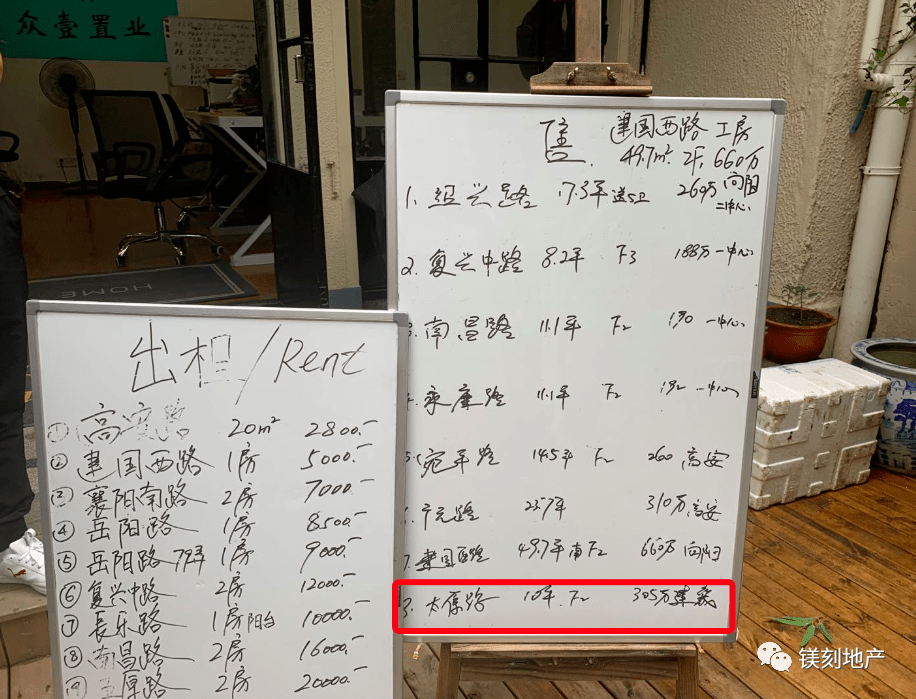 众壹置业
HOME
出租/Rent
① 高安路 20m² 2800.-
② 建国西路 1房 5000.-
③ 襄阳南路 2房 7000.-
④ 岳阳路 1房 8500.-
⑤ 岳阳路79弄 1房 9000.-
⑥ 复兴中路 2房 12000.-
⑦ 长乐路 1房阳台 10000.-
⑧ 南昌路 2房 16000.-
⑨ 路 2房 20000.-
售 建国西路 工房
49.7m². 2F, 660万
1. 绍兴路 17.3平 送5卫 269万 向阳
二中心.
2. 复兴中路 8.2平 F3 188万 一中心
3. 南昌路 11.1平 F2 190 一中心.
4. 永康路 11.1平 F2 192 一中心
5. 宛平路 14.5平 F2 260 高安
6. 广元路 23.7平 310万 高安
7. 建国西路 49.7平 南F2 660万 向阳
8. 太原路 10平. F2 305万 建襄
镁刻地产